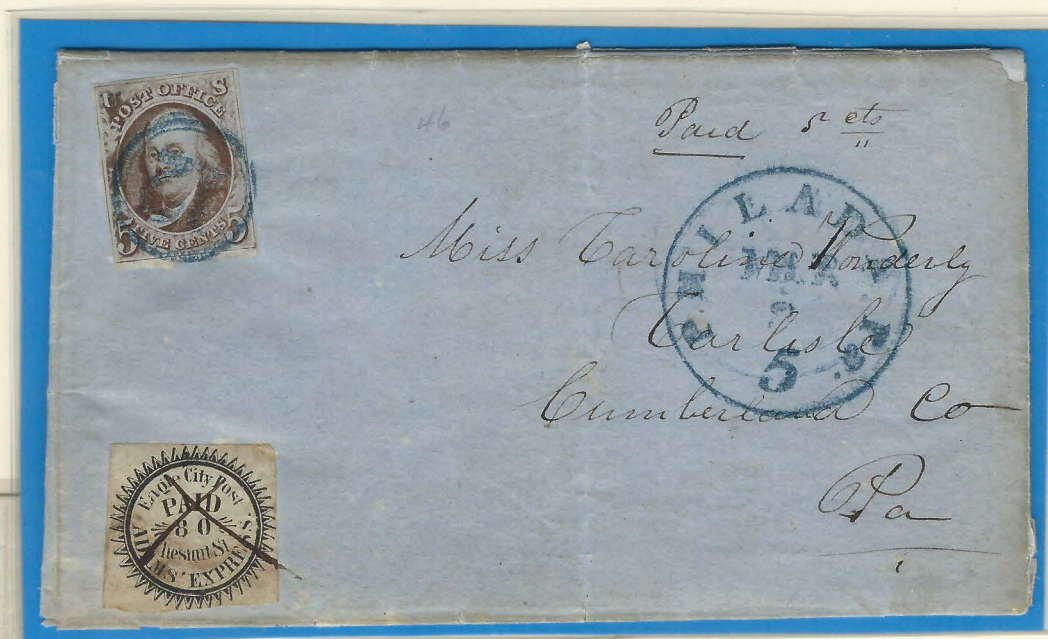 U S
POST OFFICE
5 FIVE CENTS 5
46
Paid 5 cts
PHILADA Pa.
MAR
5
Miss Caroline Wonderly
Carlisle
Cumberland Co
Pa
Eagle City Post
PAID
80
Chesnut St
ADAMS' EXPRESS